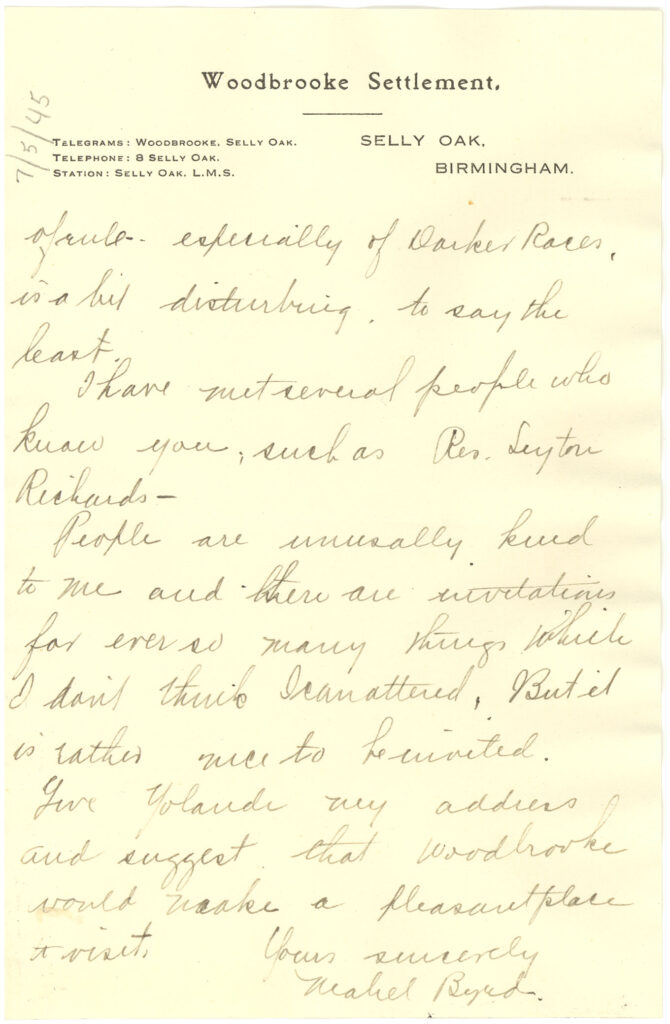 Woodbrooke Settlement.
7/5/45
TELEGRAMS: WOODBROOKE, SELLY OAK.
TELEPHONE: 8 SELLY OAK.
STATION: SELLY OAK, L.M.S.
SELLY OAK,
BIRMINGHAM.
of rule - especially of Darker Races,
is a bit disturbing, to say the
least.
I have met several people who
know you, such as Rev. Leyton
Richards -
People are unusally kind
to me and there are invitations
for ever so many things which
I don't think I can attend. But it
is rather nice to be invited.
Give Yolande my address
and suggest that Woodbrooke
would make a pleasant place
to visit.
Yours sincerely
Mabel Byrd.